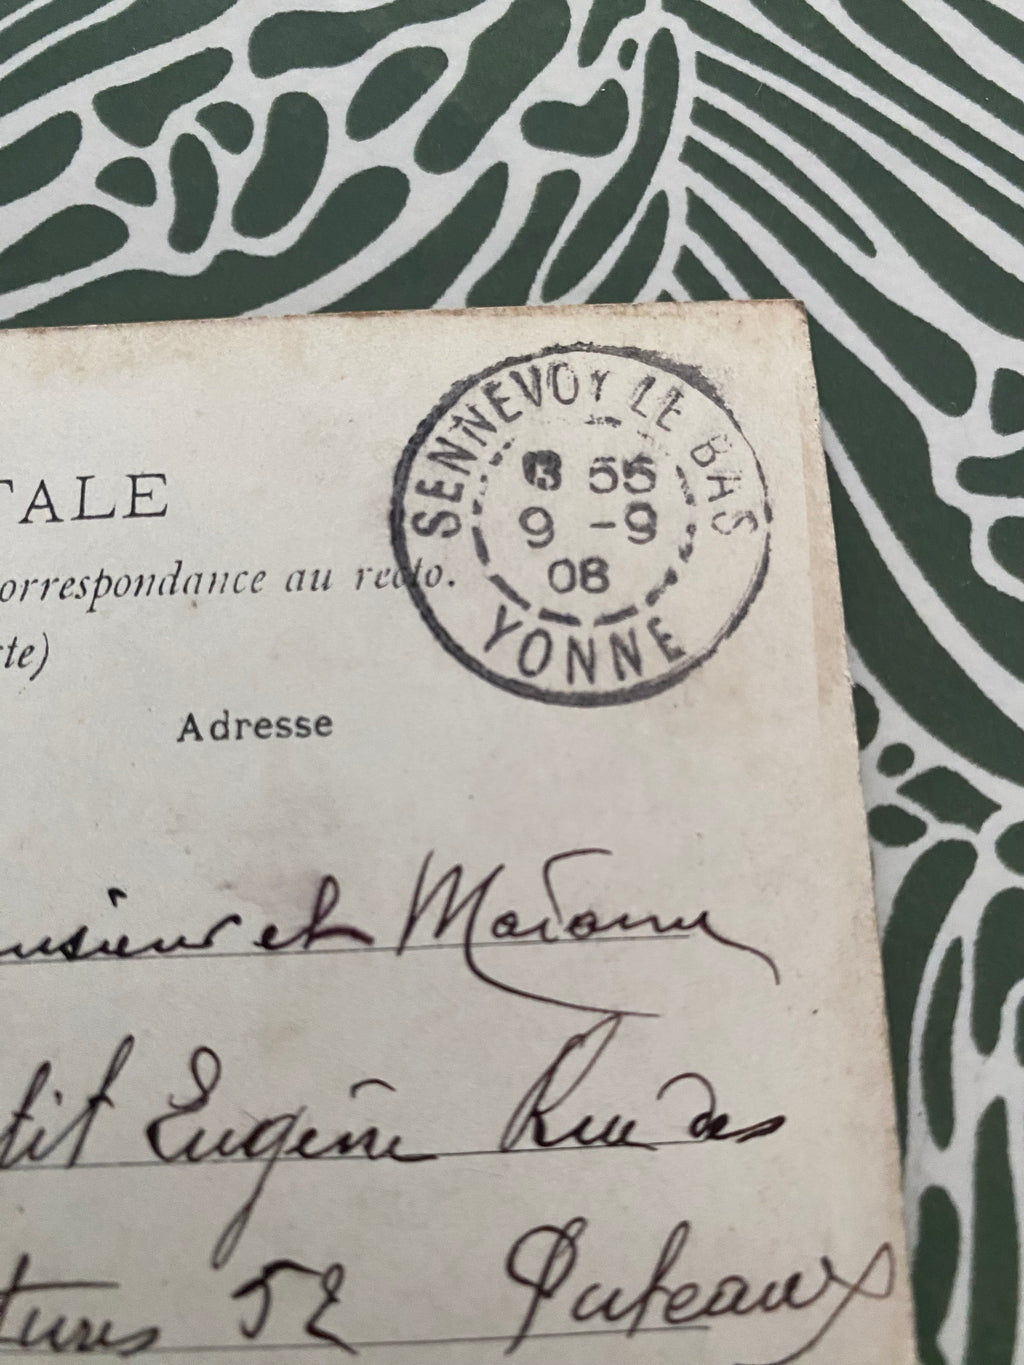 SENNEVOY LE BAS
55
9 -9
08
YONNE
TALE
orrespondance au recto.
te)
Adresse
nsieur et Madame
tit Eugène Rue des
tures 52 Puteaux